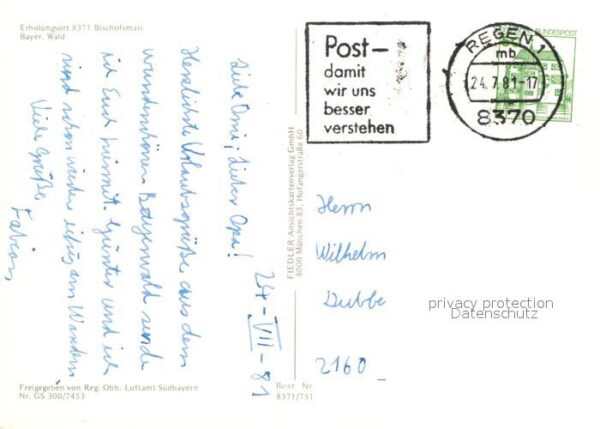 Erholungsort 8371 Bischofsmais
Bayer. Wald
24-VII-81
Liebe Omi, Lieber Opa!
Herzlichste Urlaubsgrüße aus dem
wunderschönen Bayerwald sende
ich Euch hiermit. Günter und ich
sind schon wieder eifrig am Wandern
Viele Grüße
Fabian
Freigegeben von Reg. Obb. Luftamt Südbayern
Nr. GS 300/7453
Best Nr
8371/751
FIEDLER Ansichtskartenverlag GmbH
8000 München 83, Hofangerstraße 60
Post–
damit
wir uns
besser
verstehen
REGEN 1
mb
24.7.81-17
8370
BUNDESPOST
Herrn
Wilhelm
Dubbe
2160
privacy protection
Datenschutz